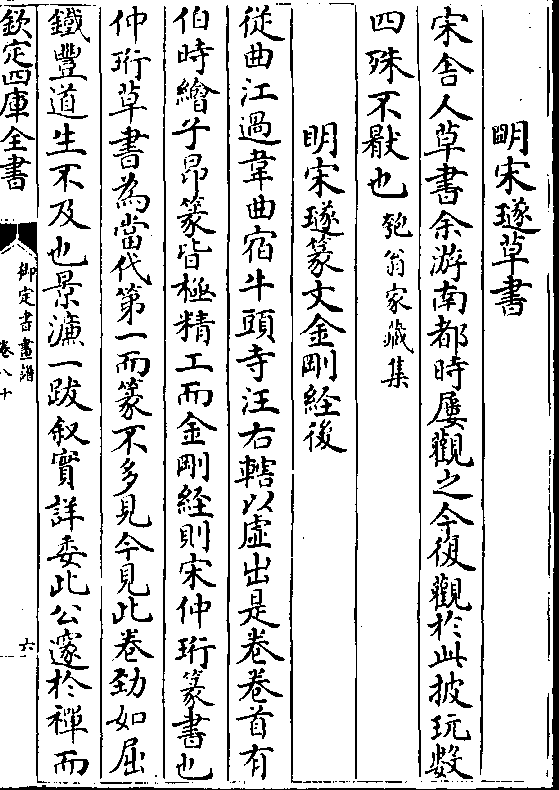 明宋璲草書
宋舍人草書余游南都時屢觀之今復觀於此披玩數
四殊不厭也匏翁家藏集
明宋璲篆文金剛經後
從曲江過韋曲宿牛頭寺汪右轄以虛出是卷卷首有
伯時繪子昂篆皆極精工而金剛經則宋仲珩篆書也
仲珩草書為當代第一而篆不多見今見此卷勁如屈
鐵豐道生不及也景濂一跋叙實詳委此公邃於禪而
欽定四庫全書
御定書畫譜
卷八十
六